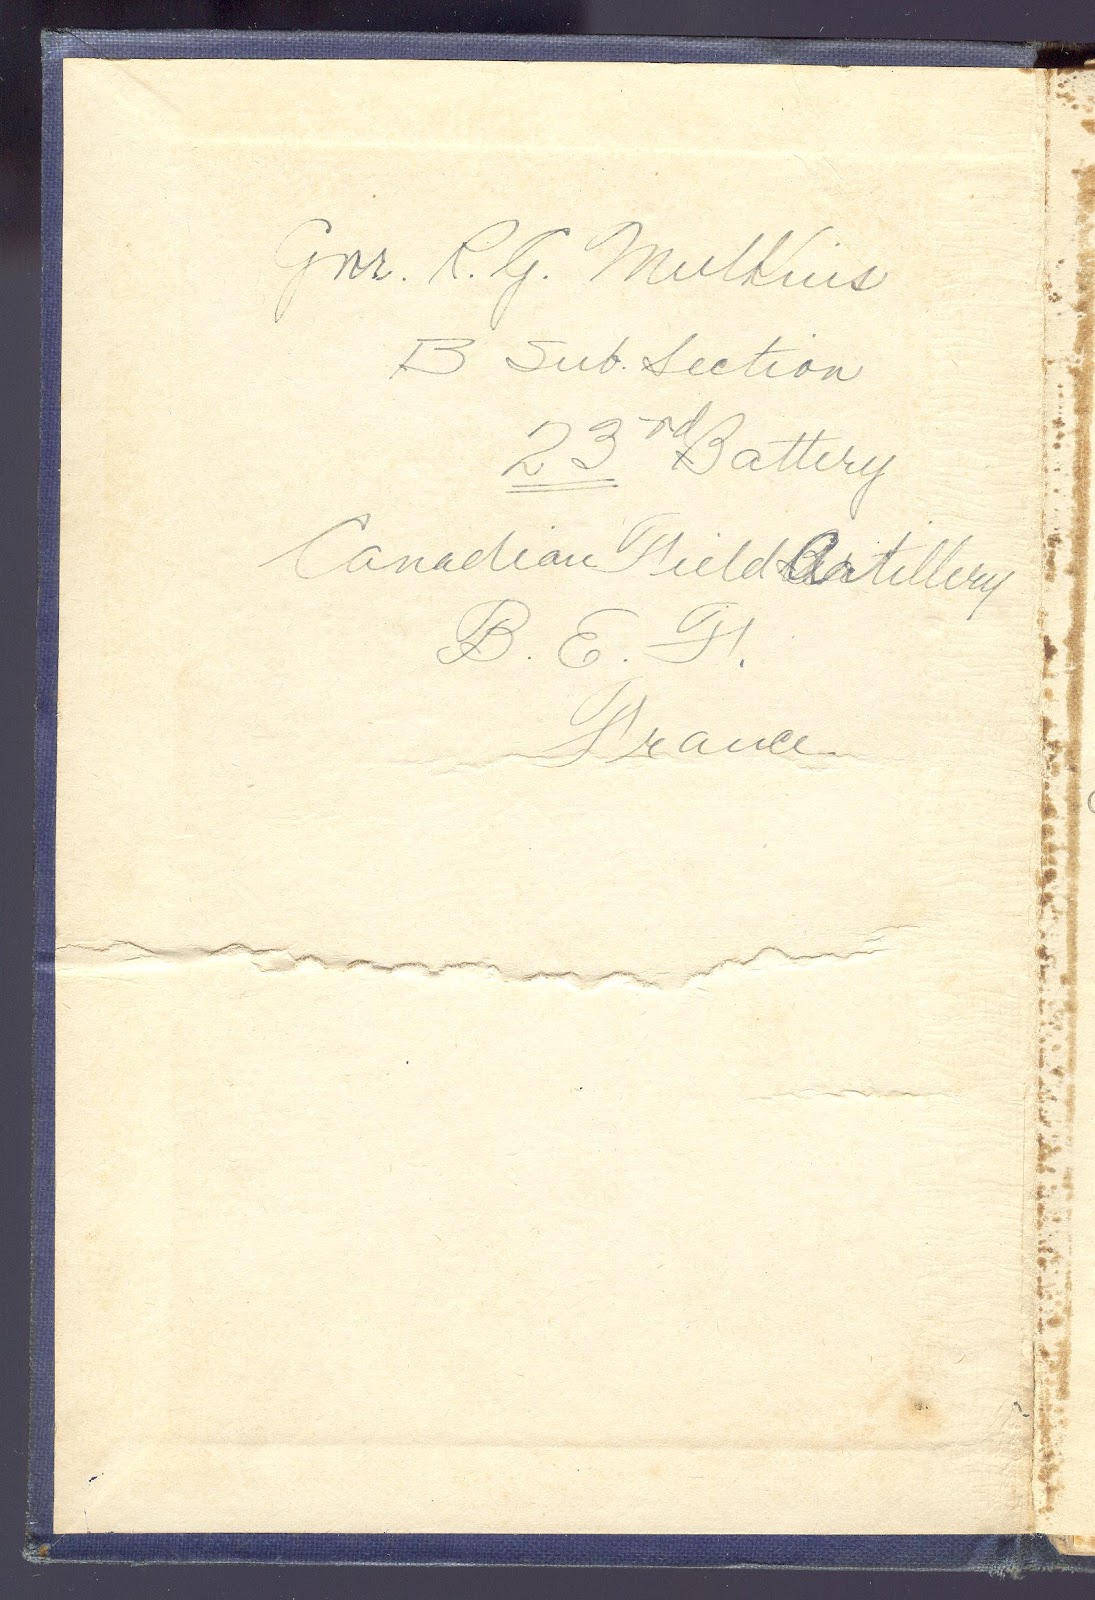 Gnr. R. G. Mulkins
B Sub. Section
23rd Battery
Canadian Field Artillery
B. E. F.
France